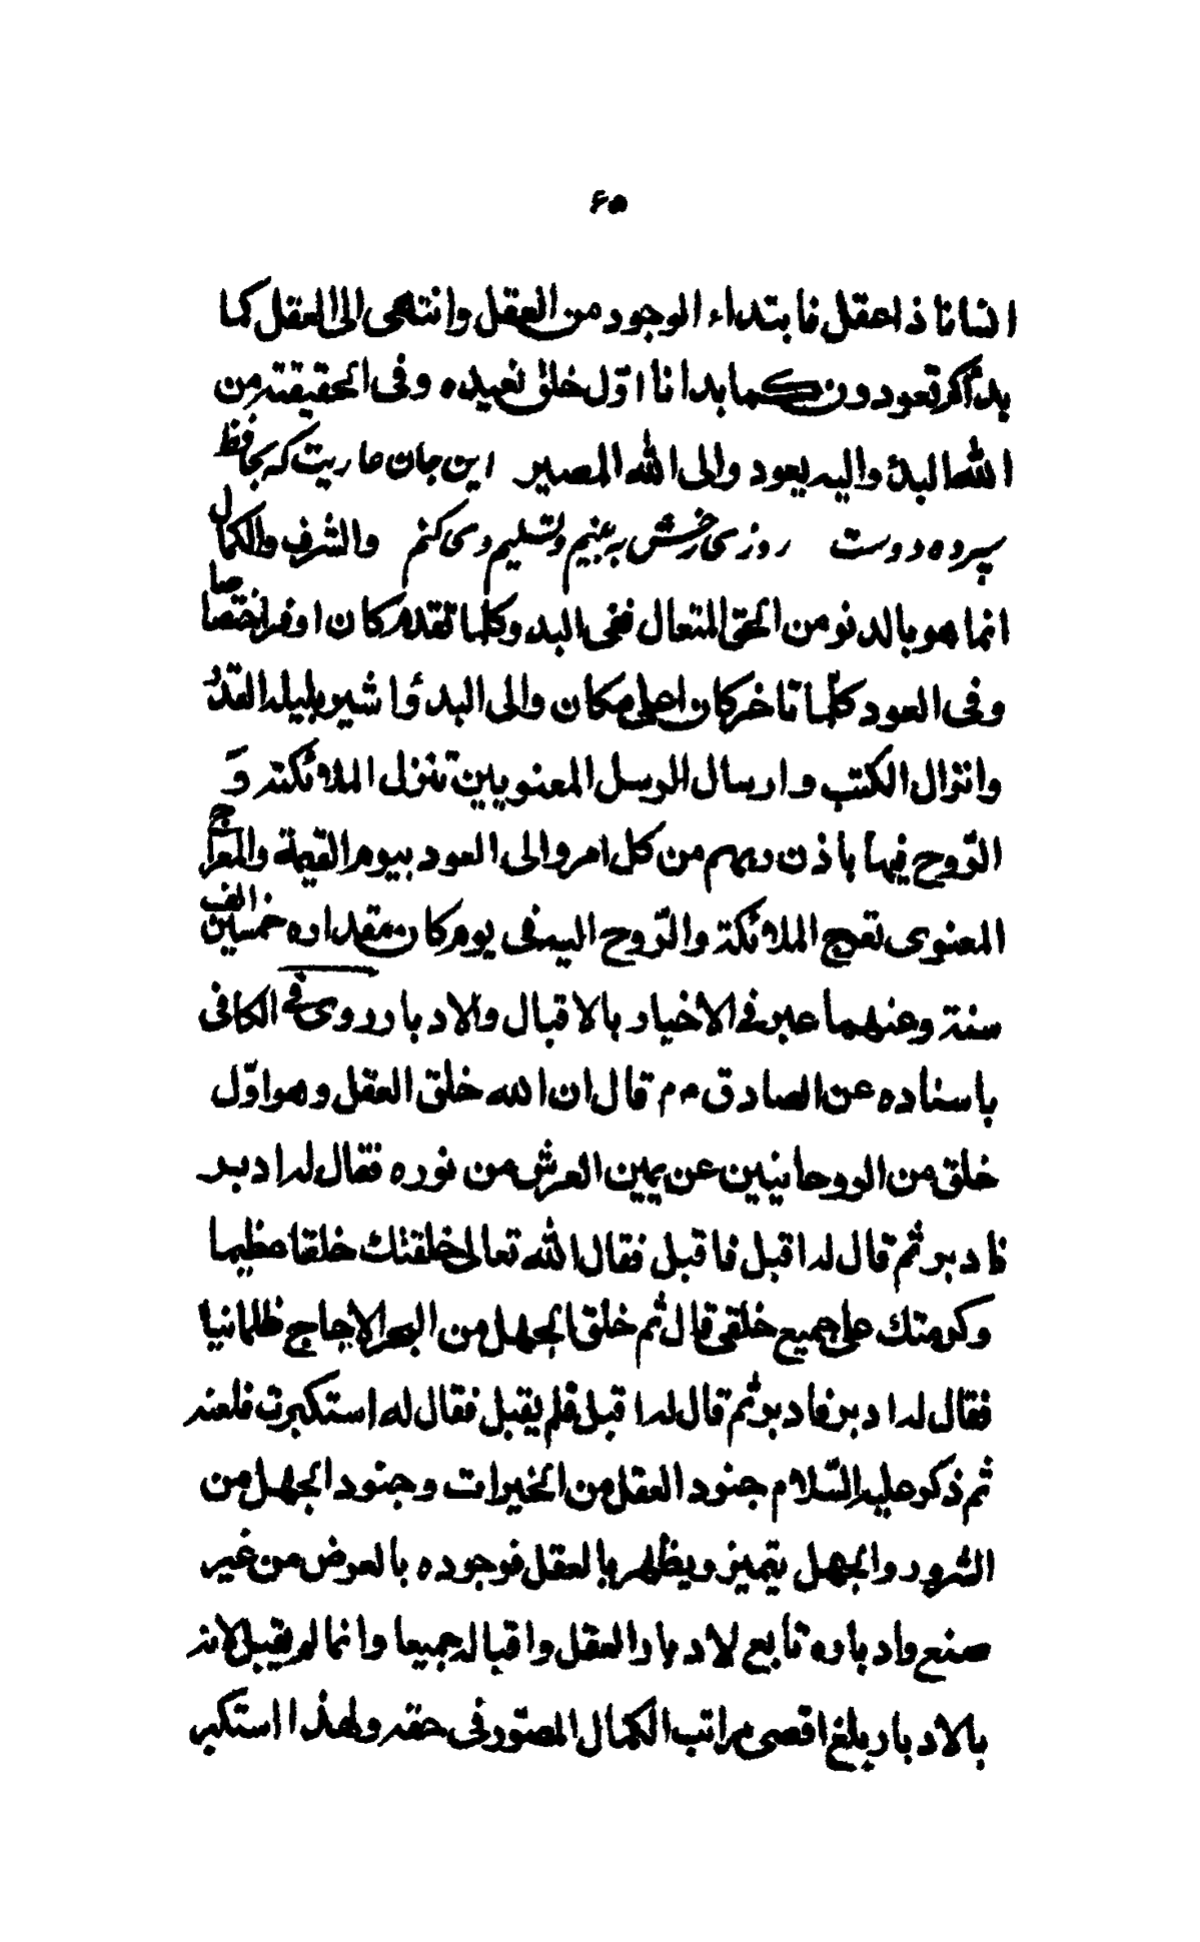 ۶۵
انسانا ذا عقل فابتداء الوجود من العقل وانتهى الى العقل كما
بدأكم تعودون كما بدانا اوّل خلق نعيده وفى الحقيقة من
الله البدؤ واليه يعود والى الله المصير اين جان عاريت كه بحافظ
سپرده دوست روزى رخش به بينم وتسليم وى كنم والشرف والكمال
انما هو بالدنو من الحق المتعال ففى البدو كلما تقدم كان اوفر اختصاصا
وفى العود كلّما تاخر كان اعلى مكان والى البدؤ اشير بليلة القدر
وانزال الكتب وارسال الرسل المعنويين تنزل الملائكة و
الرّوح فيها باذن ربهم من كل امر والى العود بيوم القيمة والمعراج
المعنوى تعرج الملائكة والرّوح اليه فى يوم كان مقداره خمسين الف
سنة وعنهما عبر فى الاخبار بالاقبال والادبار روى فى الكافى
باسناده عن الصادق ع م قال ان الله خلق العقل وهو اوّل
خلق من الروحانيين عن يمين العرش من نوره فقال له ادبر
فادبر ثم قال له اقبل فاقبل فقال الله تعالى خلقتك خلقا عظيما
وكرمتك على جميع خلقى قال ثم خلق الجهل من البحر الاجاج ظلمانيا
فقال له ادبر فادبر ثم قال له اقبل فلم يقبل فقال له استكبرت فلعنه
ثم ذكر عليه السّلام جنود العقل من الخيرات وجنود الجهل من
الشرور والجهل يتميز ويظهر بالعقل فوجوده بالعرض من غير
صنع وادباره تابع لادبار العقل واقباله جميعا وانما لم يقبل لانه
بالادبار بلغ اقصى مراتب الكمال المصوّر فى حقه ولهذا استكبر